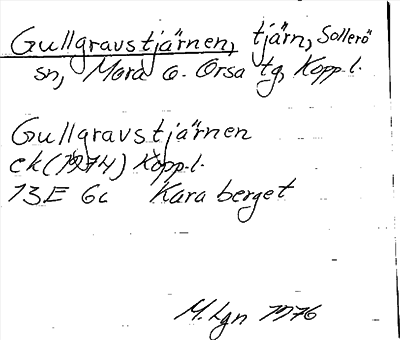 Gullgravstjärnen, tjärn, Sollerö
sn, Mora o. Orsa tg, Kopp. l.
Gullgravstjärnen
ek (1974) Kopp. l.
13E 6c Karaberget
M. Lgn 1976